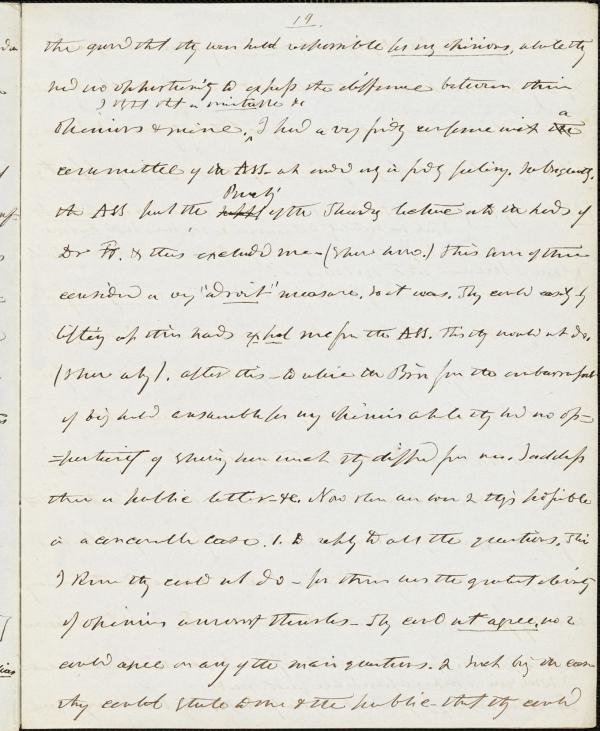 19.
the ground that they were held responsible for my opinions, while they
had no opportunity to express the difference between their
I said that a mistake &
opinions & mine. I had a very friendly conference with a the
committee of the Ass. wh ended only in friendly feeling. Subsequently,
the Ass put the Body of the Thursday lecture into the hands of
Dr F. & thus excluded me — (Show how.) This some of them
consider a very "adroit" measure. So it was. They could easily by
lifting up their hands expel me from the Ass. This they would not do.
(Show why). After this — to relieve the Brn from the embarrassment
of being held answerable for my opinions while they had no op=
=portunity of showing how much they differed from me. I address
them a public letter — &c. Now their answer 2 things possible
in a conceivable case. 1. to reply to all the questions. This
I knew they could not do — for there was the greatest diversity
of opinions amongst themselves — They could not agree, no 2
could agree on any of the main questions. 2 Such being the case
they could state to me & the public — that they could